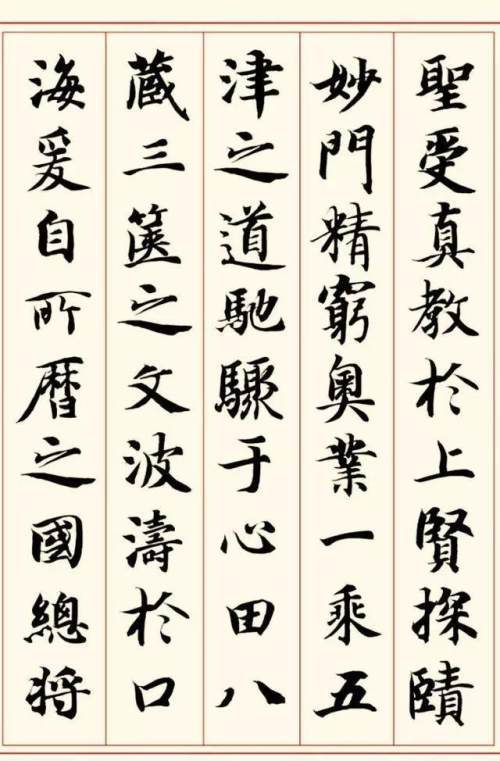 聖受真教於上賢探賾
妙門精窮奥業一乘五
津之道馳驟于心田八
蔵三篋之文波濤於口
海爰自所曆之國總将